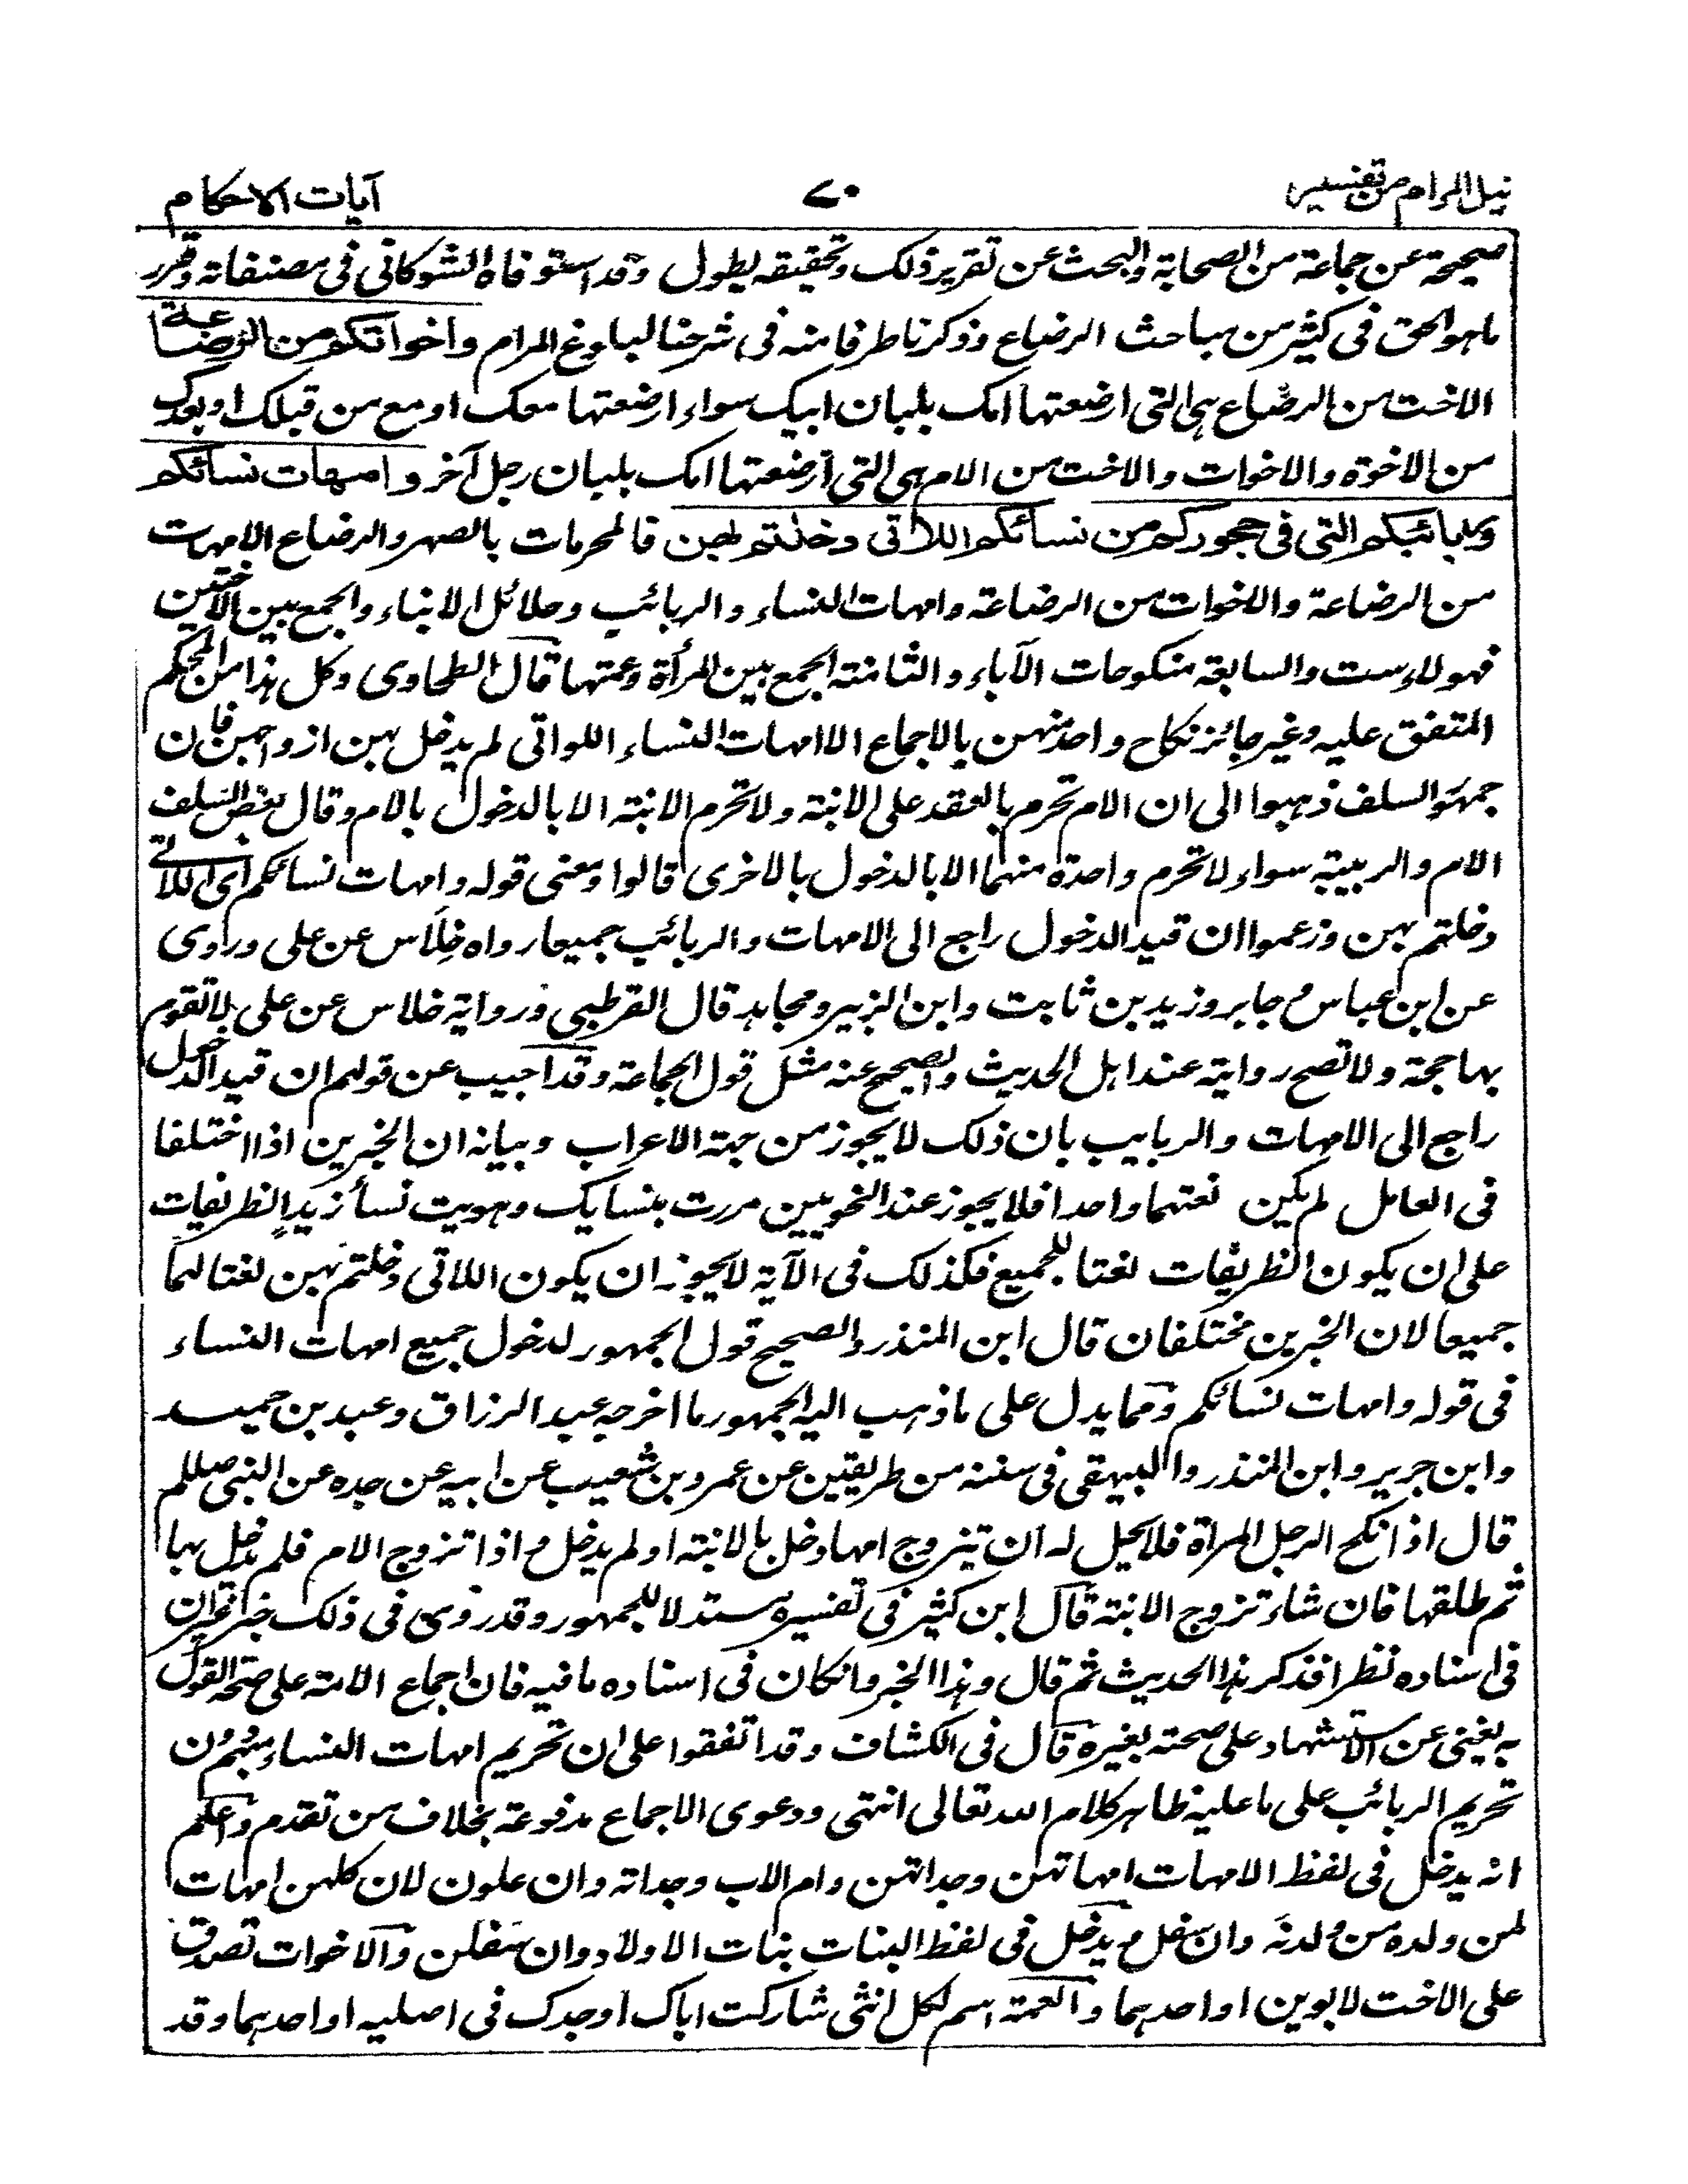 نيل المرام من تفسير
٧٠
آيات الاحكام
صحيحة عن جماعة من الصحابة والبحث عن تقرير ذلك وتحقيقه يطول وقد استوفاه الشوكاني في مصنفاته وقرر
ما هو الحق في كثير من مباحث الرضاع وذكرنا طرفا منه في شرحنا لبلوغ المرام واخواتكم من الرضاعة
الاخت من الرضاع هي التي ارضعتها امك بلبان ابيك سواء ارضعتها معك او مع من قبلك او بعدك
من الاخوة والاخوات والاخت من الام هي التي ارضعتها امك بلبان رجل آخر وامهات نسائكم
وربائبكم التي في حجوركم من نسائكم اللاتي دخلتم بهن فالمحرمات بالصهر والرضاع الامهات
من الرضاعة والاخوات من الرضاعة وامهات النساء والربائب وحلائل الابناء والجمع بين الاختين
فهولاء ست والسابقة منكوحات الآباء والثامنة الجمع بين المرأة وعمتها قال الطحاوي وكل هذا من المحكم
المتفق عليه وغير جائز نكاح واحد منهن بالاجماع الا امهات النساء اللواتي لم يدخل بهن ازواجهن فان
جمهور السلف ذهبوا الى ان الام تحرم بالعقد على الابنة ولا تحرم الابنة الا بالدخول بالام وقال بعض السلف
الام والربيبة سواء لا تحرم واحدة منهما الا بالدخول بالاخرى قالوا ومعنى قوله وامهات نسائكم اي اللاتي
دخلتم بهن وزعموا ان قيد الدخول راجع الى الامهات والربائب جميعا رواه خلاس عن علي وروي
عن ابن عباس وجابر وزيد بن ثابت وابن الزبير ومجاهد قال القرطبي ورواية خلاس عن علي لا تقوم
بها حجة ولا تصح روايته عند اهل الحديث والصحيح عنه مثل قول الجماعة وقد اجيب عن قولهم ان قيد الدخول
راجع الى الامهات والربايب بان ذلك لا يجوز من جهة الاعراب وبيانه ان الخبرين اذا اختلفا
في العامل لم يكن نعتهما واحدا فلا يجوز عند النحويين مررت بنسايك وهويت نساء زيد الظريفات
على ان يكون الظريفات نعتا للجميع فكذلك في الآية لا يجوز ان يكون اللاتي دخلتم بهن نعتا لهما
جميعا لان الخبرين مختلفان قال ابن المنذر والصحيح قول الجمهور لدخول جميع امهات النساء
في قوله وامهات نسائكم ومما يدل على ما ذهب اليه الجمهور ما اخرجه عبد الرزاق وعبد بن حميد
وابن جرير وابن المنذر والبيهقي في سننه من طريقين عن عمرو بن شعيب عن ابيه عن جده عن النبي صللم
قال اذا نكح الرجل المرأة فلا يحل له ان يتزوج امها دخل بالابنة او لم يدخل واذا تزوج الام فلم يدخل بها
ثم طلقها فان شاء تزوج الابنة قال ابن كثير في تفسيره مستدلا للجمهور وقد روي في ذلك خبر غير ان
في اسناده نظرا فذكر هذا الحديث ثم قال وهذا الخبر وان كان في اسناده ما فيه فان اجماع الامة على صحة القول
به يغني عن الاستشهاد على صحته بغيره قال في الكشاف وقد اتفقوا على ان تحريم امهات النساء مبهم دون
تحريم الربائب على ما عليه ظاهر كلام الله تعالى انتهى ودعوى الاجماع مدفوعة بخلاف من تقدم واعلم
انه يدخل في لفظ الامهات امهاتهن وجداتهن وام الاب وجداته وان علون لان كلهن امهات
لمن ولده من ولدته وان سفل ويدخل في لفظ البنات بنات الاولاد وان سفلن والاخوات تصدق
على الاخت لابوين او احدهما والعمة اسم لكل انثى شاركت اباك او جدك في اصليه او احدهما وقد